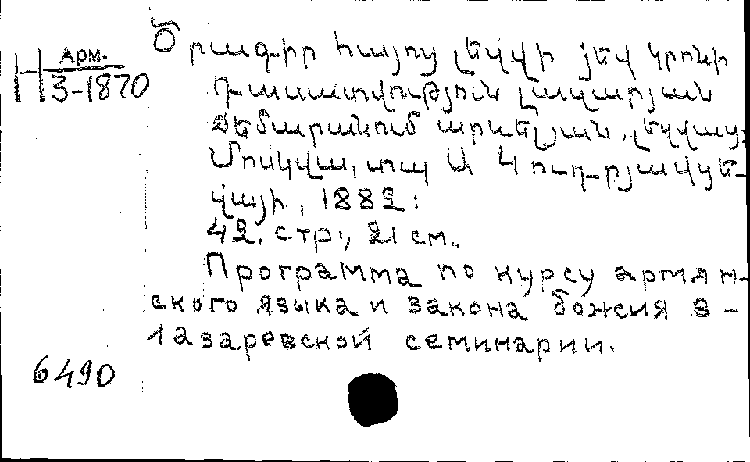 Арм.
Н
3-1870
Ծրագիր հայոց լեզվի յեվ կրոնի
դասատվություն լազարյան
Ճեմարանում արևելյան լեզվաց,
Մոսկվա, տպ Ա Կուդրյավցե-
վայի, 1882:
42. стр., 21 см.
Программа по курсу армян-
ского языка и закона божия в -
лазаревской семинарии.
6490